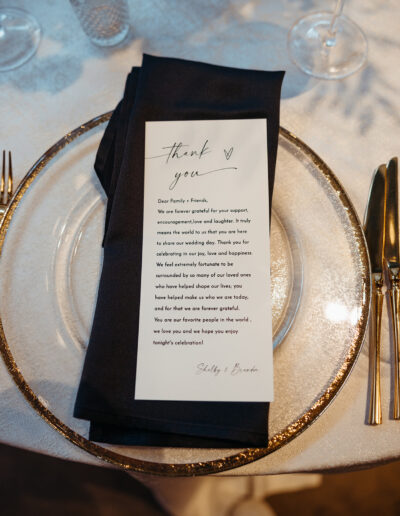 thank
you
Dear Family + Friends,
We are forever grateful for your support,
encouragement,love and laughter. It truly
means the world to us that you are here
to share our wedding day. Thank you for
celebrating in our joy, love and happiness.
We feel extremely fortunate to be
surrounded by so many of our loved ones
who have helped shape our lives; you
have helped make us who we are today;
and for that we are forever grateful.
You are our favorite people in the world ,
we love you and we hope you enjoy
tonight's celebration!
Shelby &